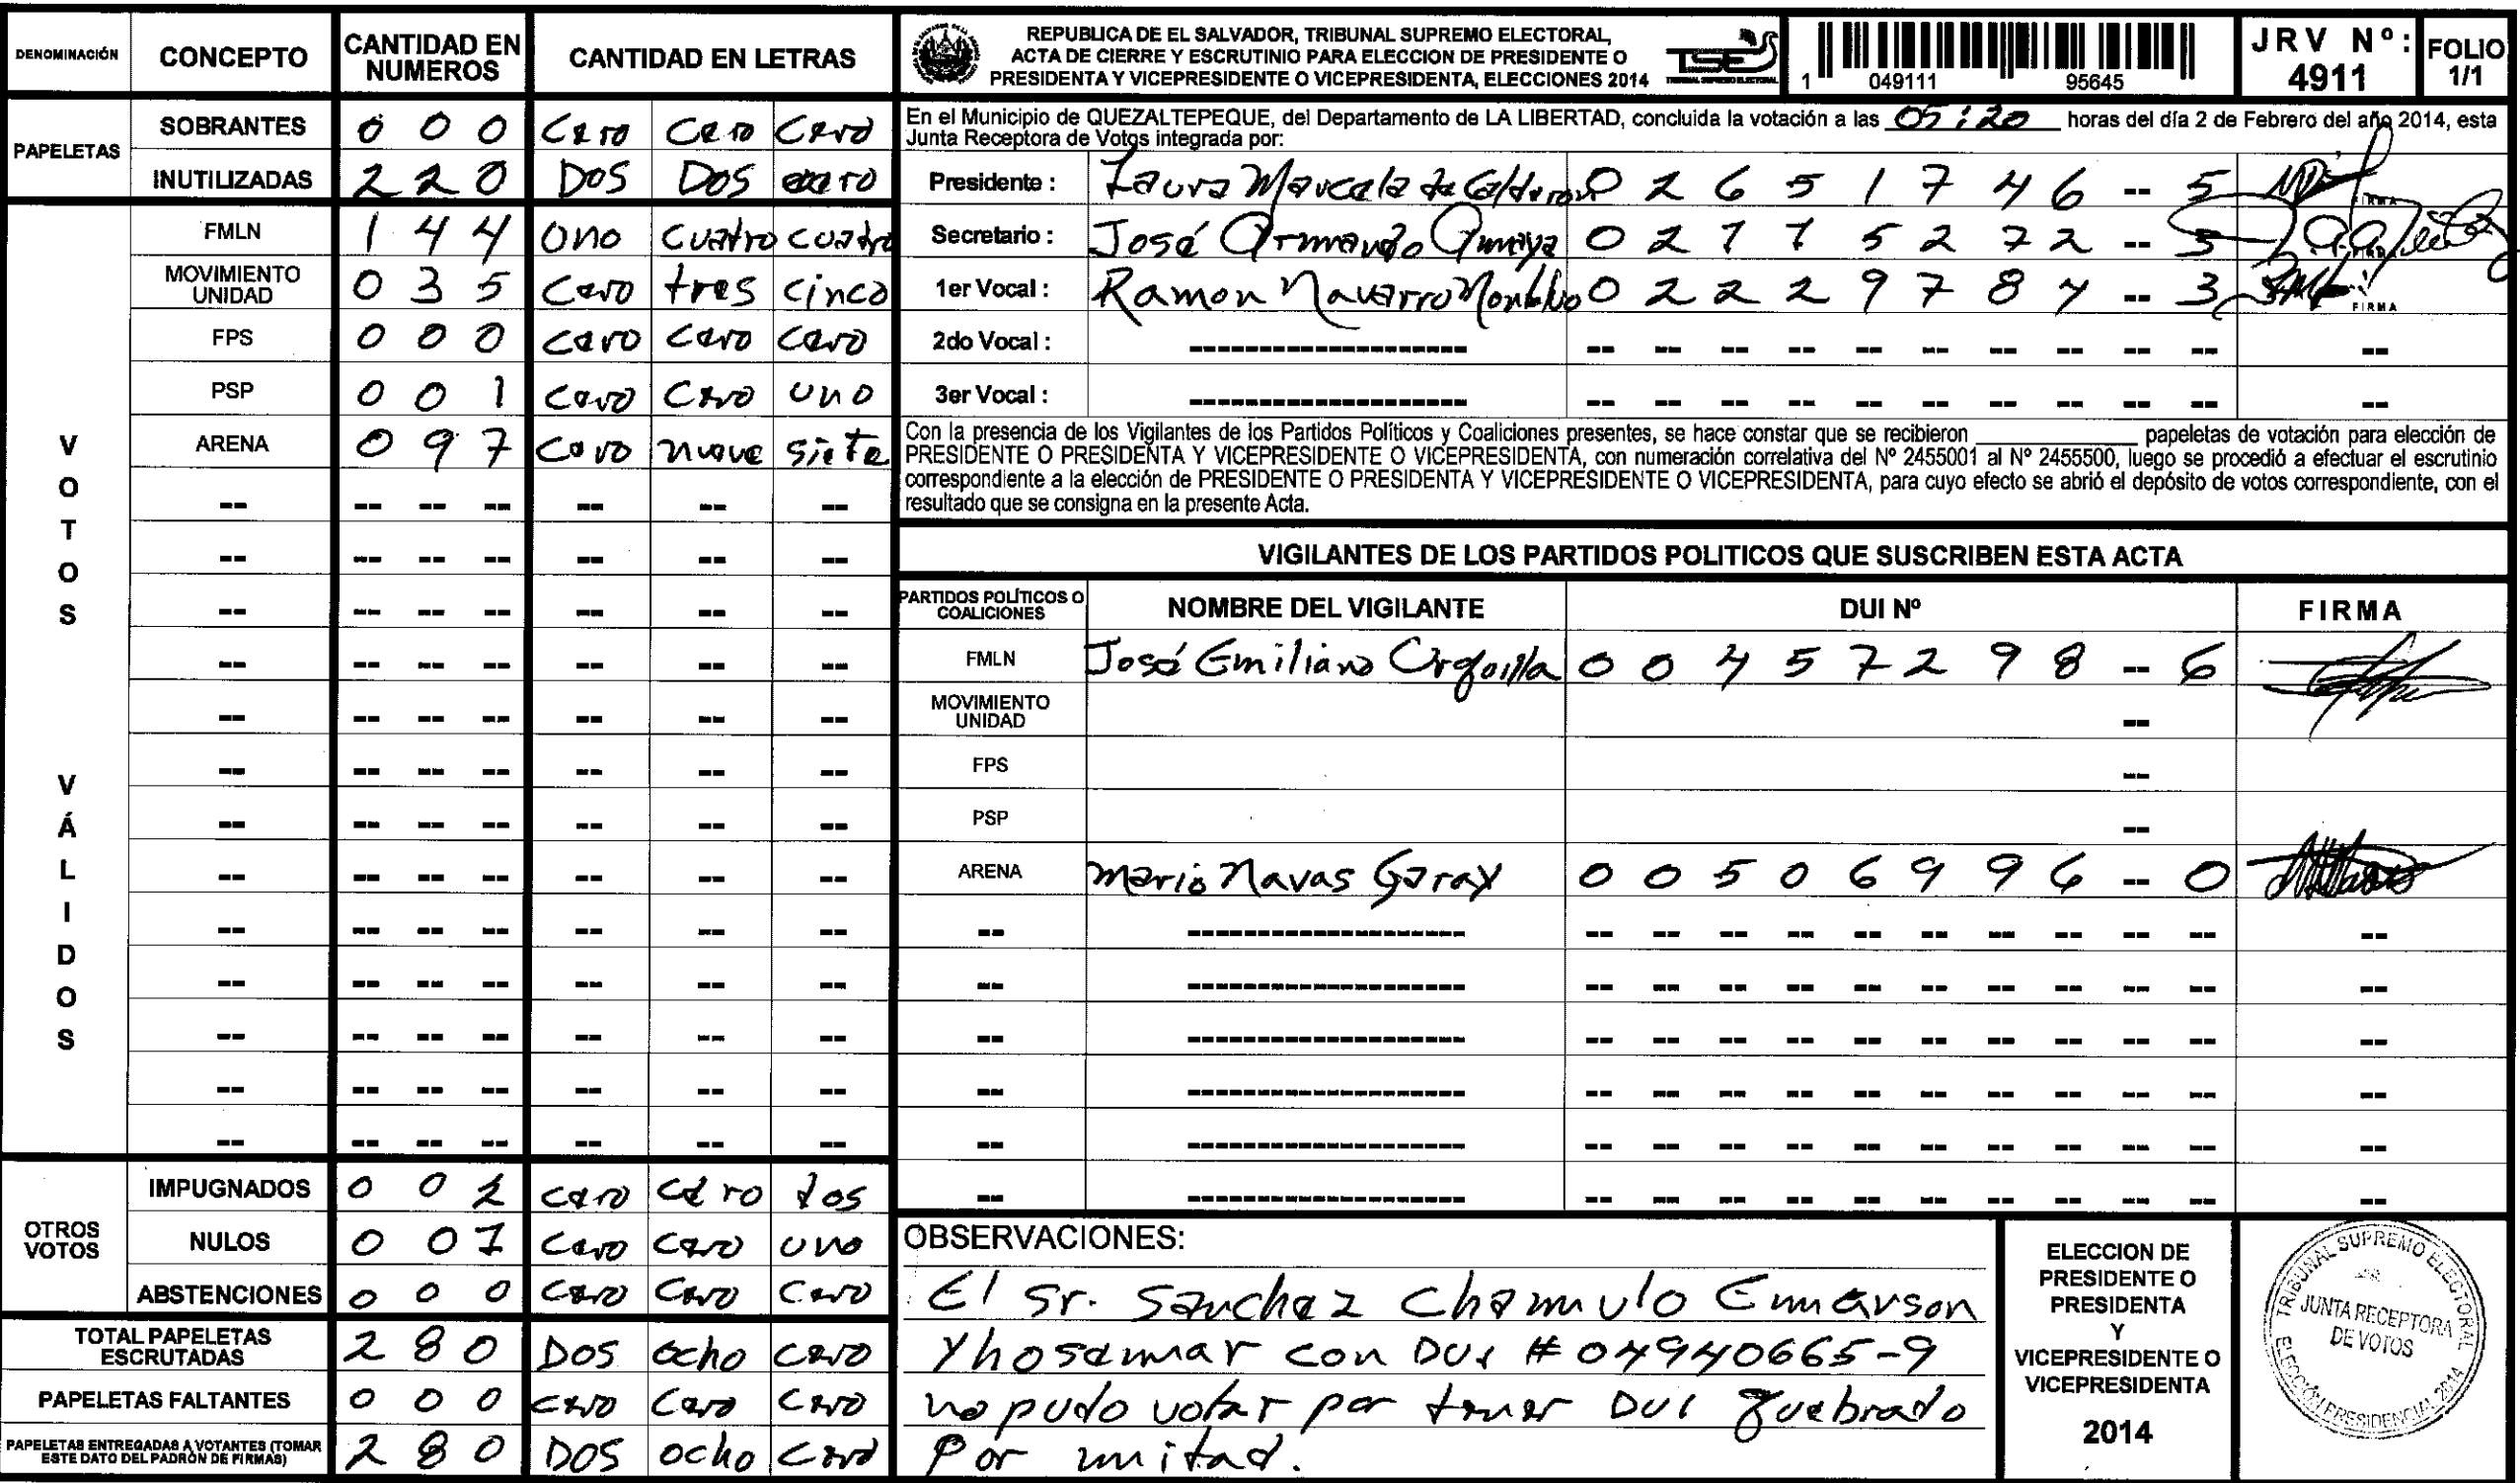 DENOMINACIÓN CONCEPTO CANTIDAD EN NUMEROS CANTIDAD EN LETRAS
PAPELETAS
SOBRANTES 0 0 0 Cero Cero Cero
INUTILIZADAS 2 2 0 DOS DOS cero
VOTOS VÁLIDOS
FMLN 1 4 4 Uno Cuatro cuatro
MOVIMIENTO UNIDAD 0 3 5 Cero tres cinco
FPS 0 0 0 cero cero cero
PSP 0 0 1 cero cero uno
ARENA 0 9 7 cero nueve siete
-- -- -- -- -- -- --
-- -- -- -- -- -- --
-- -- -- -- -- -- --
-- -- -- -- -- -- --
-- -- -- -- -- -- --
-- -- -- -- -- -- --
-- -- -- -- -- -- --
-- -- -- -- -- -- --
-- -- -- -- -- -- --
-- -- -- -- -- -- --
-- -- -- -- -- -- --
-- -- -- -- -- -- --
-- -- -- -- -- -- --
OTROS VOTOS
IMPUGNADOS 0 0 2 cero cero dos
NULOS 0 0 1 cero cero uno
ABSTENCIONES 0 0 0 cero cero cero
TOTAL PAPELETAS ESCRUTADAS 2 8 0 DOS ocho cero
PAPELETAS FALTANTES 0 0 0 cero cero cero
PAPELETAS ENTREGADAS A VOTANTES (TOMAR ESTE DATO DEL PADRÓN DE FIRMAS) 2 8 0 DOS ocho cero
REPUBLICA DE EL SALVADOR, TRIBUNAL SUPREMO ELECTORAL,
ACTA DE CIERRE Y ESCRUTINIO PARA ELECCION DE PRESIDENTE O
PRESIDENTA Y VICEPRESIDENTE O VICEPRESIDENTA, ELECCIONES 2014
TSE
TRIBUNAL SUPREMO ELECTORAL
1 049111 95645
JRV Nº: 4911
FOLIO 1/1
En el Municipio de QUEZALTEPEQUE, del Departamento de LA LIBERTAD, concluida la votación a las 05:20 horas del día 2 de Febrero del año 2014, esta
Junta Receptora de Votos integrada por:
Presidente : Laura Marcela de Calderon 0 2 6 5 1 7 4 6 -- 5 FIRMA
Secretario : José Armando Amaya 0 2 7 7 5 2 7 2 -- 5 FIRMA
1er Vocal : Ramon Navarro 0 2 2 2 9 7 8 4 -- 3 FIRMA
2do Vocal : -------------------- -- -- -- -- -- -- -- -- -- -- --
3er Vocal : -------------------- -- -- -- -- -- -- -- -- -- -- --
Con la presencia de los Vigilantes de los Partidos Políticos y Coaliciones presentes, se hace constar que se recibieron ____________ papeletas de votación para elección de
PRESIDENTE O PRESIDENTA Y VICEPRESIDENTE O VICEPRESIDENTA, con numeración correlativa del Nº 2455001 al Nº 2455500, luego se procedió a efectuar el escrutinio
correspondiente a la elección de PRESIDENTE O PRESIDENTA Y VICEPRESIDENTE O VICEPRESIDENTA, para cuyo efecto se abrió el depósito de votos correspondiente, con el
resultado que se consigna en la presente Acta.
VIGILANTES DE LOS PARTIDOS POLITICOS QUE SUSCRIBEN ESTA ACTA
PARTIDOS POLÍTICOS O COALICIONES NOMBRE DEL VIGILANTE DUI Nº FIRMA
FMLN José Emiliano 0 0 4 5 7 2 9 8 -- 6
MOVIMIENTO UNIDAD --
FPS --
PSP --
ARENA Mario Navas Garay 0 0 5 0 6 9 9 6 -- 0
-- -------------------- -- -- -- -- -- -- -- -- -- -- --
-- -------------------- -- -- -- -- -- -- -- -- -- -- --
-- -------------------- -- -- -- -- -- -- -- -- -- -- --
-- -------------------- -- -- -- -- -- -- -- -- -- -- --
-- -------------------- -- -- -- -- -- -- -- -- -- -- --
-- -------------------- -- -- -- -- -- -- -- -- -- -- --
OBSERVACIONES:
El Sr. Sanchez Chamulo Emerson
Yhosemar con DUI # 04940665-9
no pudo votar por tener DUI quebrado
por mitad.
ELECCION DE
PRESIDENTE O
PRESIDENTA
Y
VICEPRESIDENTE O
VICEPRESIDENTA
2014
TRIBUNAL SUPREMO ELECTORAL
JUNTA RECEPTORA
DE VOTOS
ELECCIÓN PRESIDENCIAL 2014